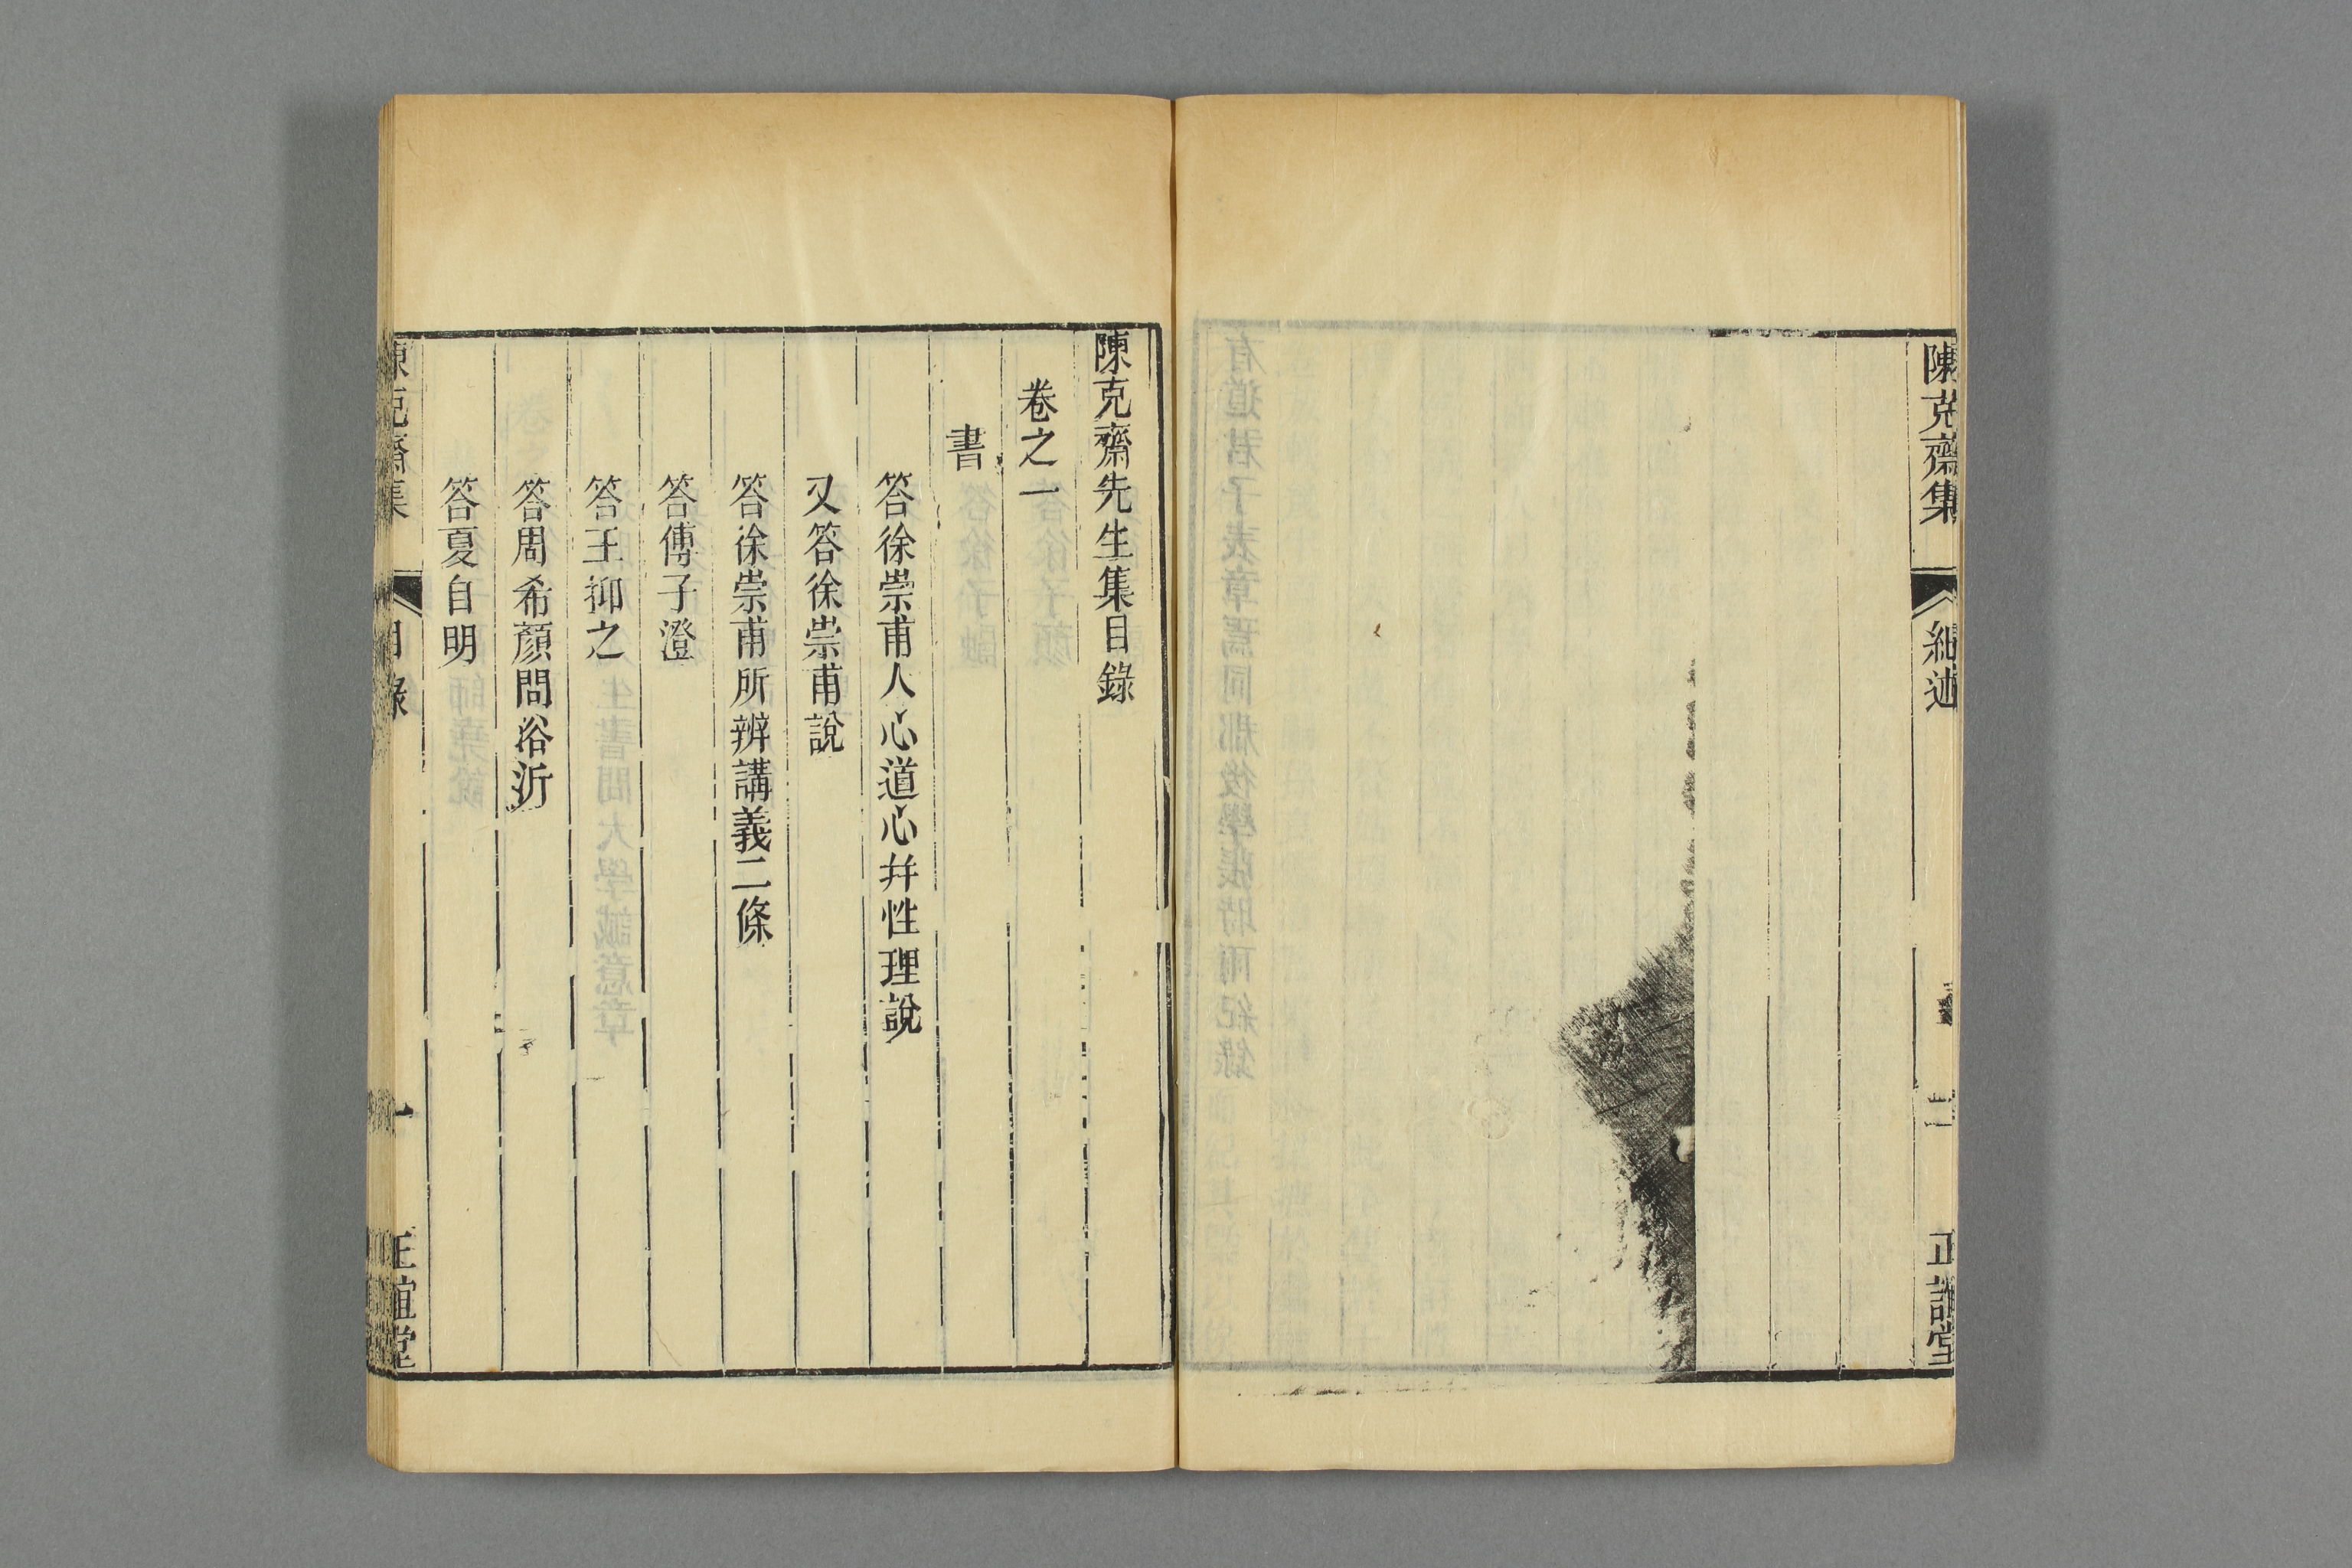 陳克齋集
紀述
二
正誼堂
陳克齋先生集目錄
卷之一
書
答徐崇甫人心道心并性理說
又答徐崇甫說
答徐崇甫所辨講義二條
答傅子澄
答王抑之
答周希顏問浴沂
答夏自明
陳克齋集
目錄
一
正誼堂